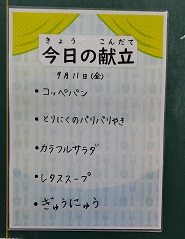 きょう こんだて
今日の献立
9月11日(金)
・コッペパン
・とりにくのパリパリやき
・カラフルサラダ
・レタススープ
・ぎゅうにゅう